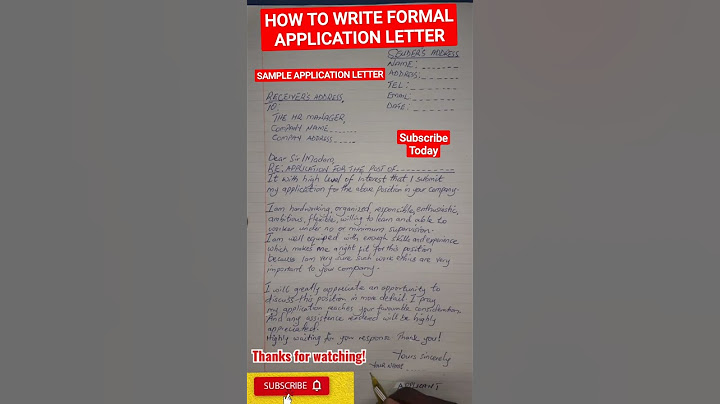 HOW TO WRITE FORMAL
APPLICATION LETTER
SENDER'S ADDRESS
NAME:
ADDRESS:
TEL:
EMAIL:
DATE:
SAMPLE APPLICATION LETTER
RECEIVER'S ADDRESS,
TO:
THE HR MANAGER,
COMPANY NAME
COMPANY ADDRESS
Subscribe
Today
Dear Sir/Madam,
RE: APPLICATION FOR THE POST OF
It with high level of interest that I submit
my application for the above position in your company.
I am hardworking, organized responsible, enthusiastic,
ambitious, flexible, willing to learn and able to
under no or minimum supervision.
I am well equiped with enough skills and experience
which makes me a right fit for this position
because I am very sure such work ethics are very
important to your company.
I will greatly appreciate an opportunity to
discuss this position in more detail. I pray
my application reaches your favourable consideration.
And any assistence rendered will be highly
appreciated.
Highly waiting for your response. Thank you!
Yours sincerely
YOUR NAME
Thanks for watching!
SUBSCRIBE
APPLICANT